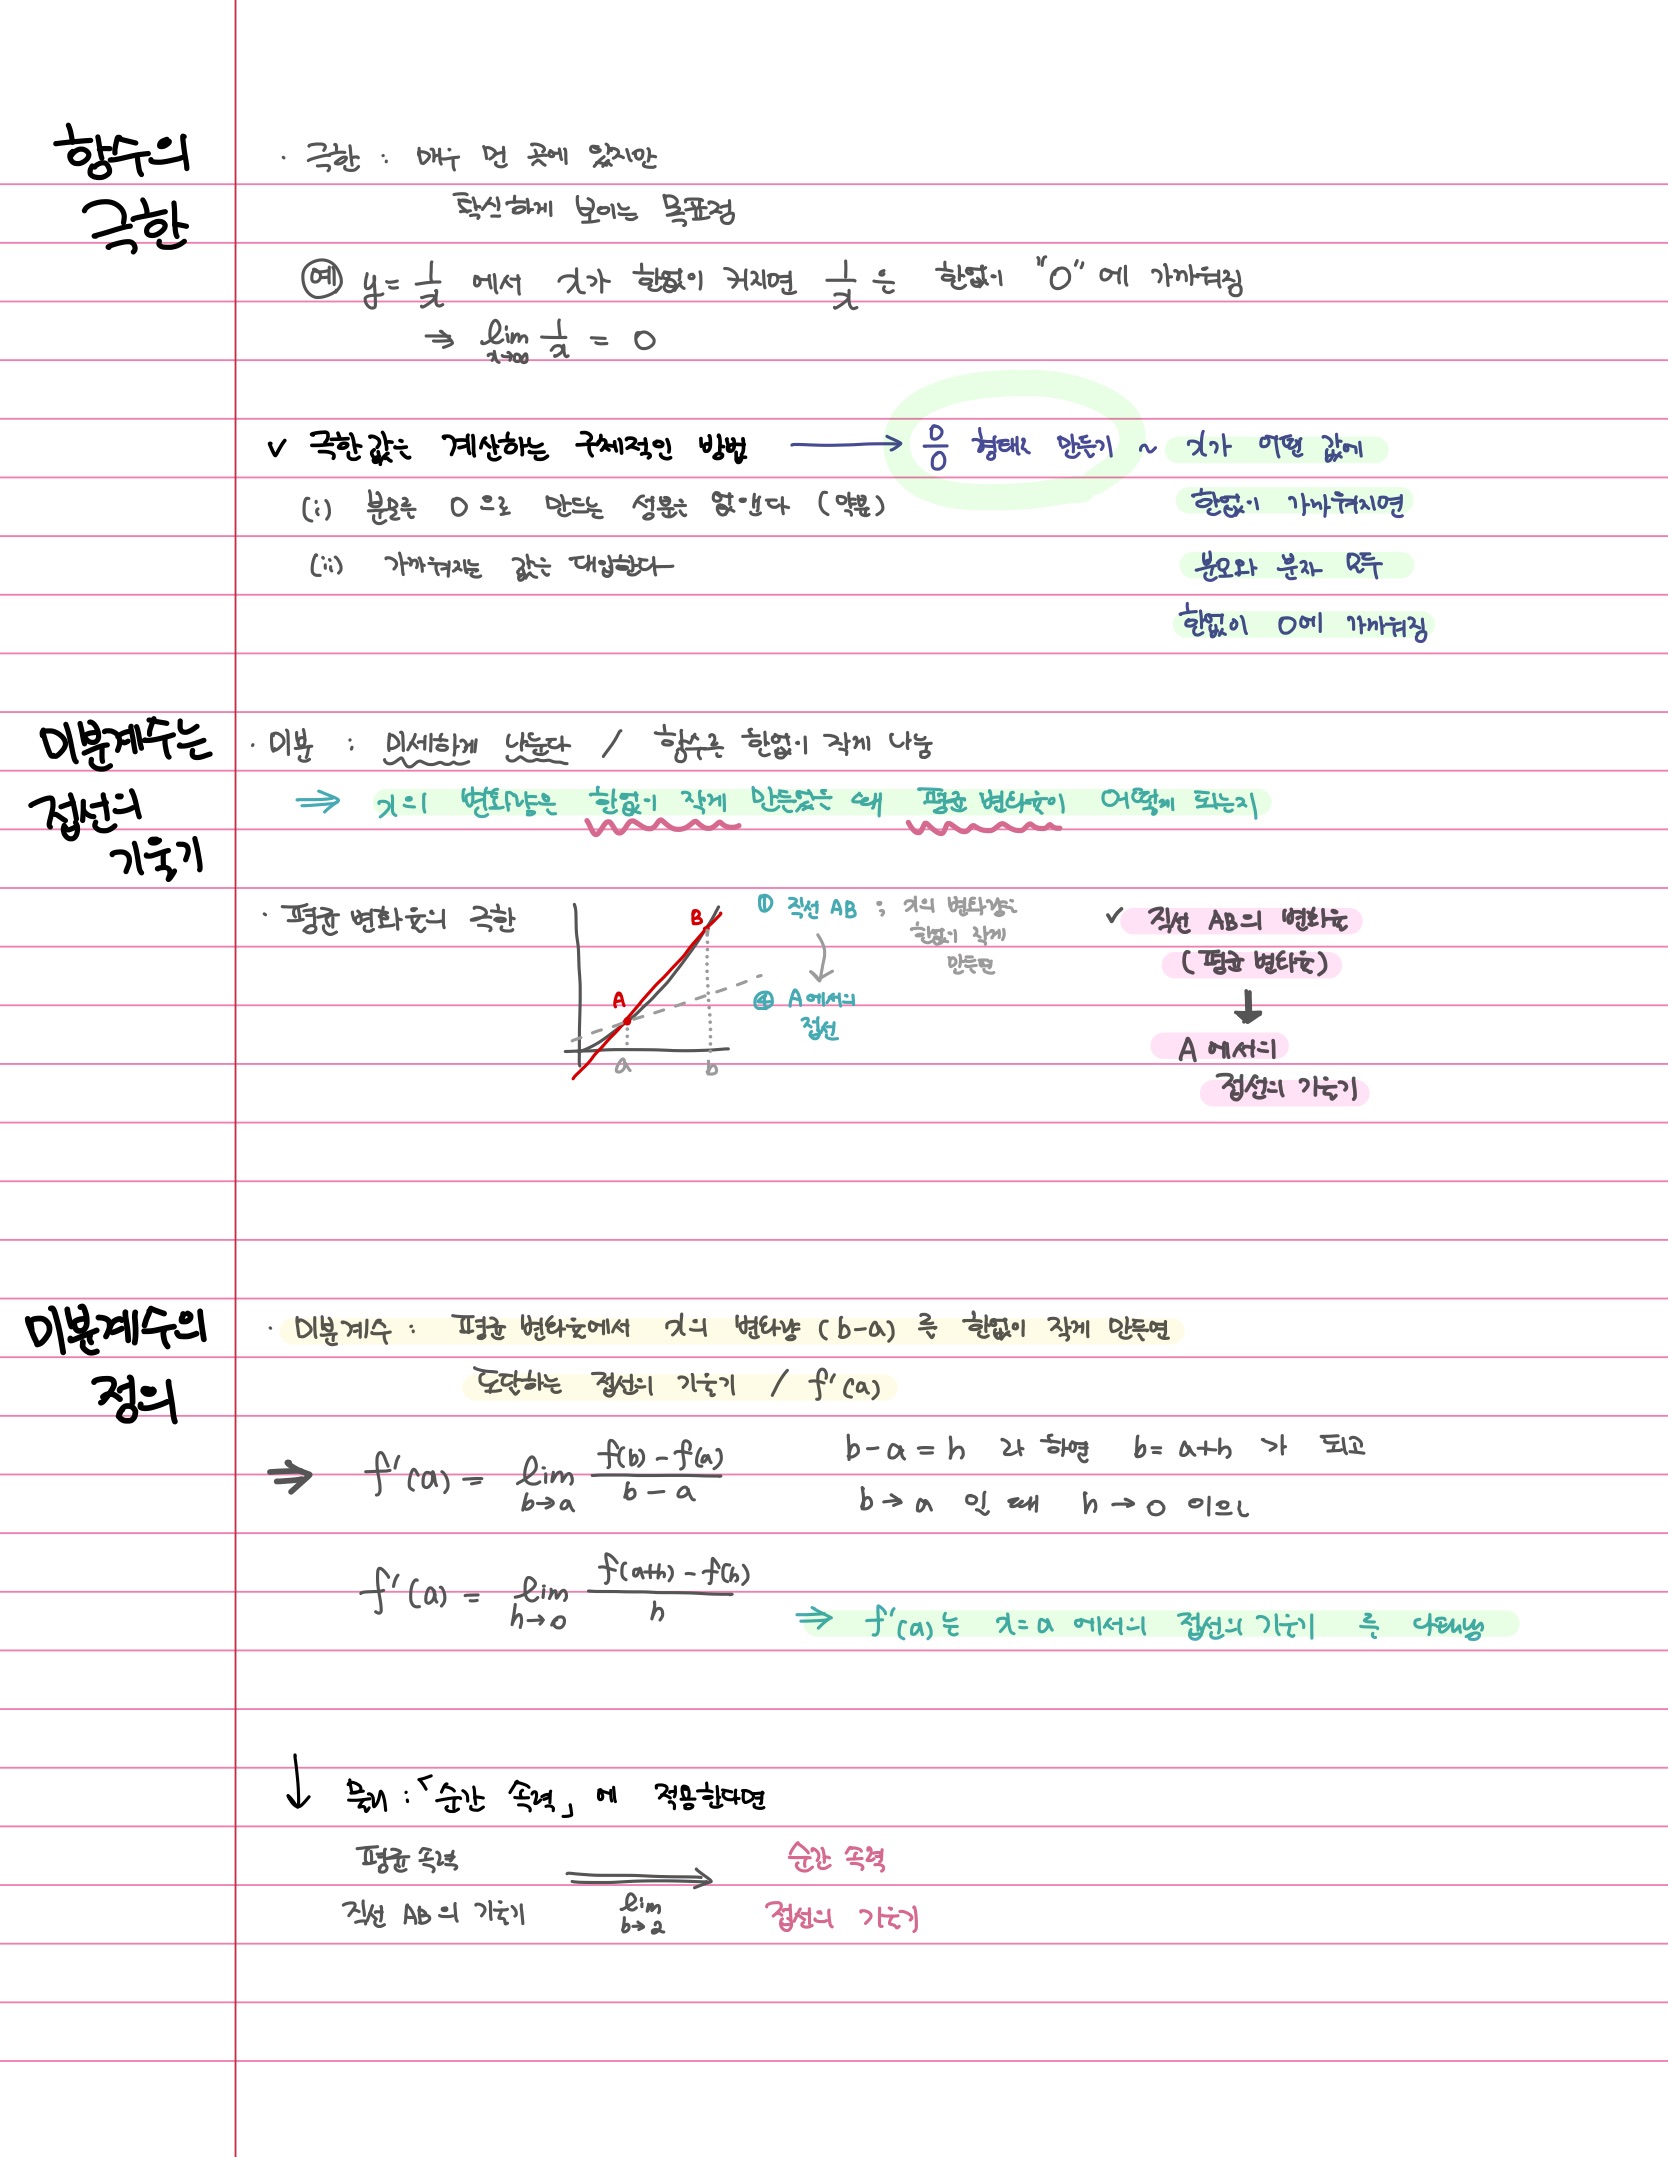 함수의
극한
· 극한 : 매우 먼 곳에 있지만
확실하게 보이는 목표점
예 y = 1/x 에서 x가 한없이 커지면 1/x 은 한없이 "0"에 가까워짐
⇒ lim x→∞ 1/x = 0
✓ 극한값을 계산하는 구체적인 방법 → 0/0 형태로 만들기 ~ x가 어떤 값에
한없이 가까워지면
분모와 분자 모두
한없이 0에 가까워짐
(i) 분모를 0으로 만드는 성분을 없앤다 (약분)
(ii) 가까워지는 값을 대입한다
미분계수는
접선의
기울기
· 미분 : 미세하게 나눈다 / 함수를 한없이 작게 나눔
⇒ x의 변화량을 한없이 작게 만들었을 때 평균변화율이 어떻게 되는지
· 평균변화율의 극한
B
A
a b
① 직선 AB ; x의 변화량을
한없이 작게
만들면
② A에서의
접선
✓ 직선 AB의 변화율
(평균변화율)
↓
A에서의
접선의 기울기
미분계수의
정의
· 미분계수 : 평균변화율에서 x의 변화량 (b-a) 를 한없이 작게 만들면
도달하는 접선의 기울기 / f'(a)
⇒ f'(a) = lim b→a (f(b) - f(a))/(b - a)
b - a = h 라 하면 b = a+h 가 되고
b → a 일 때 h → 0 이므로
f'(a) = lim h→0 (f(a+h) - f(h))/h
⇒ f'(a)는 x=a 에서의 접선의 기울기 를 나타냄
↓ 물리 : 「순간 속력」에 적용한다면
평균 속력 ⇒ 순간 속력
직선 AB의 기울기 lim b→2 접선의 기울기